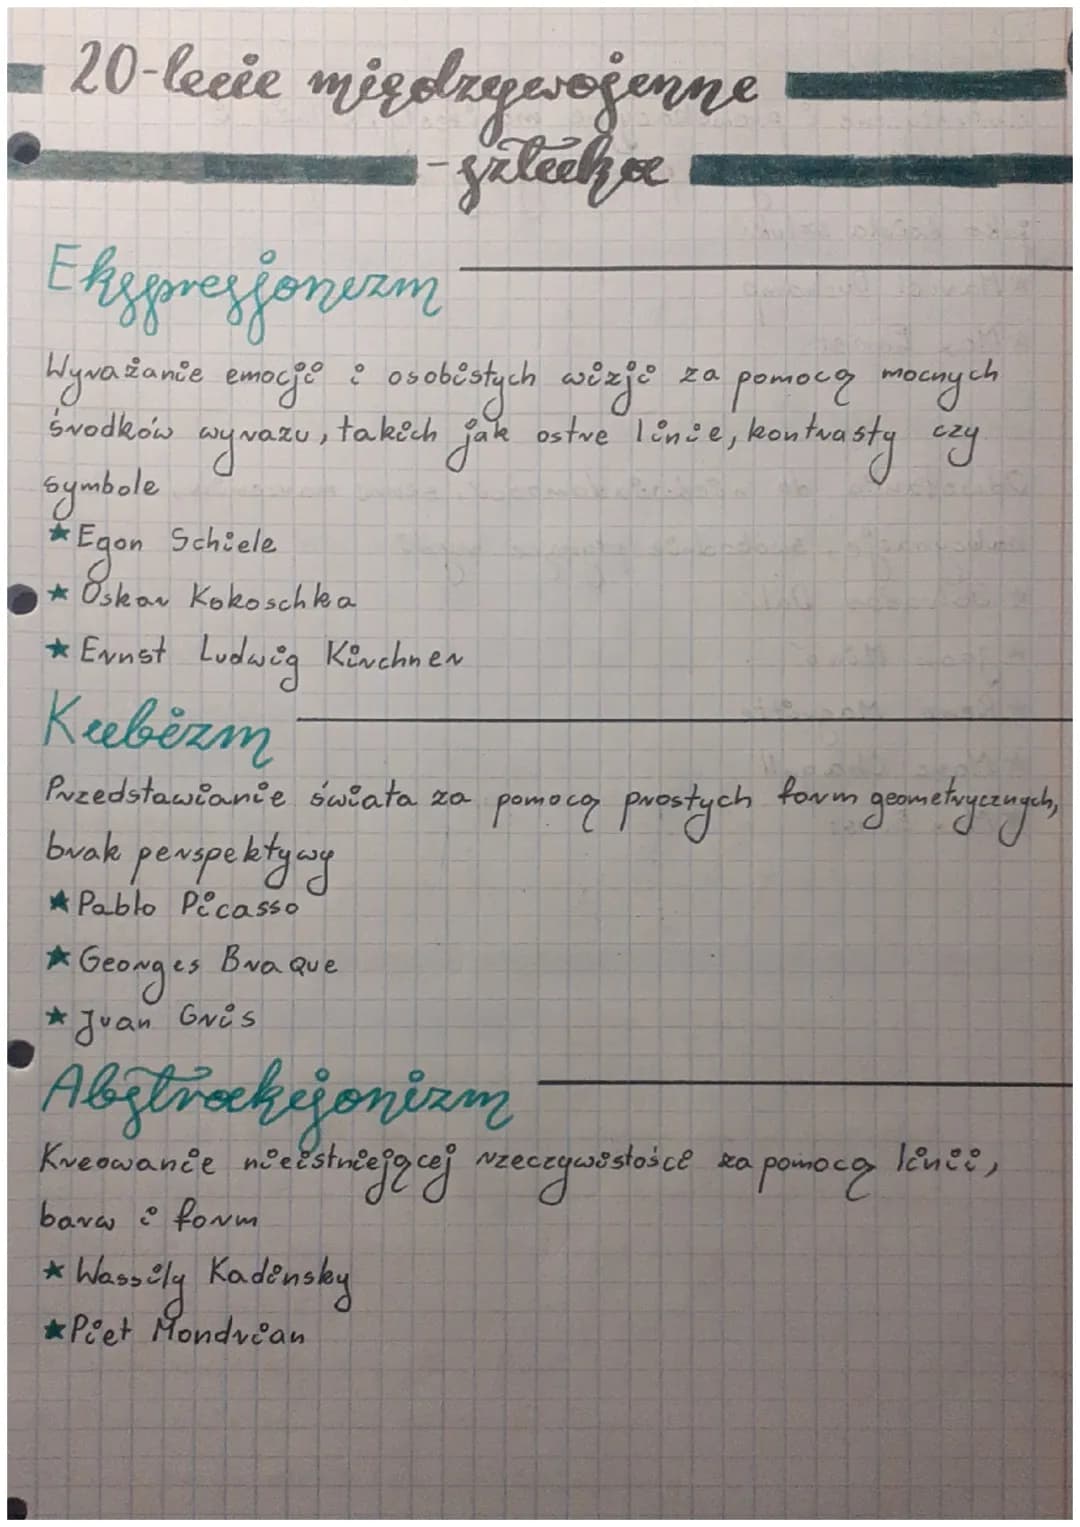 20-lecie międzywojenne
- sztuka
Ekspresjonizm
Wyrażanie emocji i osobistych wizji za pomocą mocnych
środków wyrazu, takich jak ostre linie, kontrasty czy
symbole
★ Egon Schiele
★ Oskar Kokoschka
★ Ernst Ludwig Kirchner
Kubizm
Przedstawianie świata za pomocą prostych form geometrycznych,
brak perspektywy
★ Pablo Picasso
★ Georges Braque
★ Juan Gris
Abstrakcjonizm
Kreowanie nieistniejącej rzeczywistości za pomocą linii,
barw i form
★ Wassily Kadinsky
★ Piet Mondrian